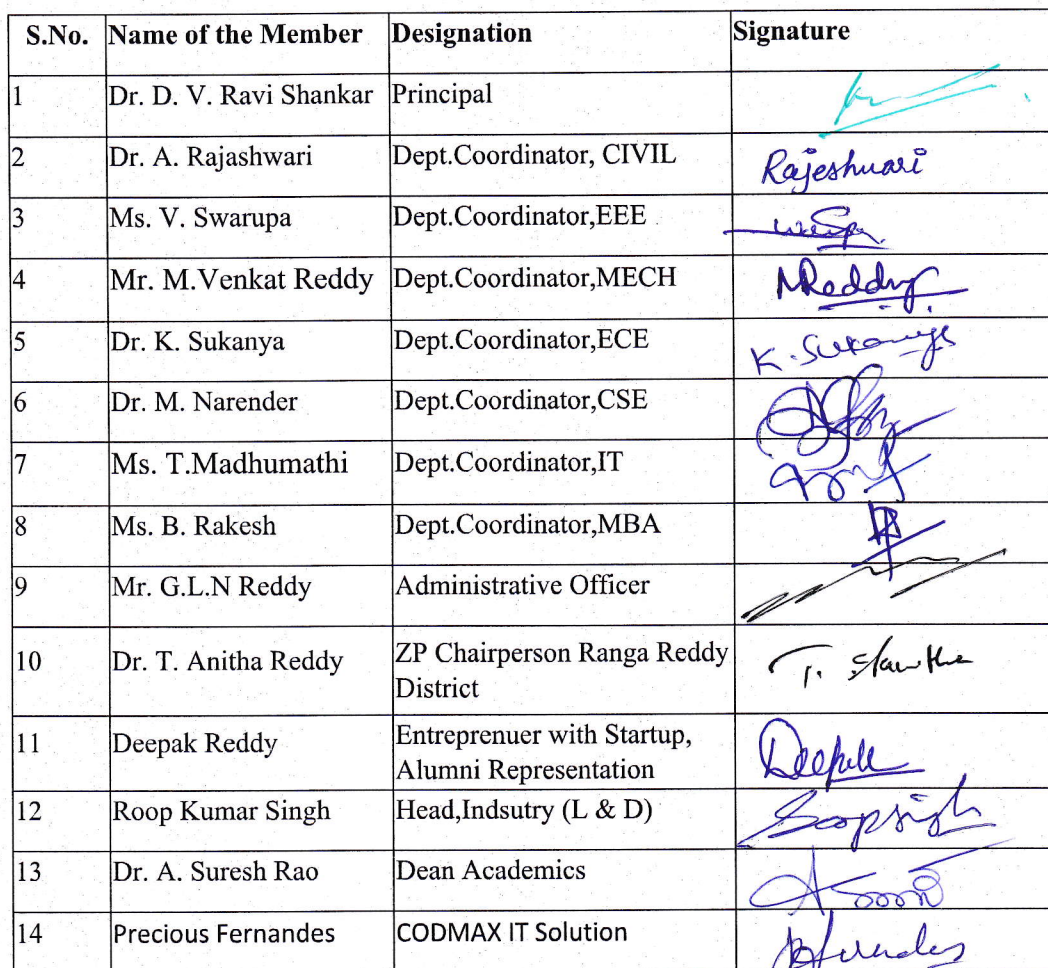 S.No. Name of the Member Designation Signature
1 Dr. D. V. Ravi Shankar Principal
2 Dr. A. Rajashwari Dept.Coordinator, CIVIL Rajeshwari
3 Ms. V. Swarupa Dept.Coordinator,EEE
4 Mr. M.Venkat Reddy Dept.Coordinator,MECH MReddy
5 Dr. K. Sukanya Dept.Coordinator,ECE K. Sukanya
6 Dr. M. Narender Dept.Coordinator,CSE
7 Ms. T.Madhumathi Dept.Coordinator,IT
8 Ms. B. Rakesh Dept.Coordinator,MBA
9 Mr. G.L.N Reddy Administrative Officer
10 Dr. T. Anitha Reddy ZP Chairperson Ranga Reddy
District
11 Deepak Reddy Entreprenuer with Startup,
Alumni Representation
Deepak
12 Roop Kumar Singh Head,Indsutry (L & D) Roopsingh
13 Dr. A. Suresh Rao Dean Academics
14 Precious Fernandes CODMAX IT Solution Pfernandes